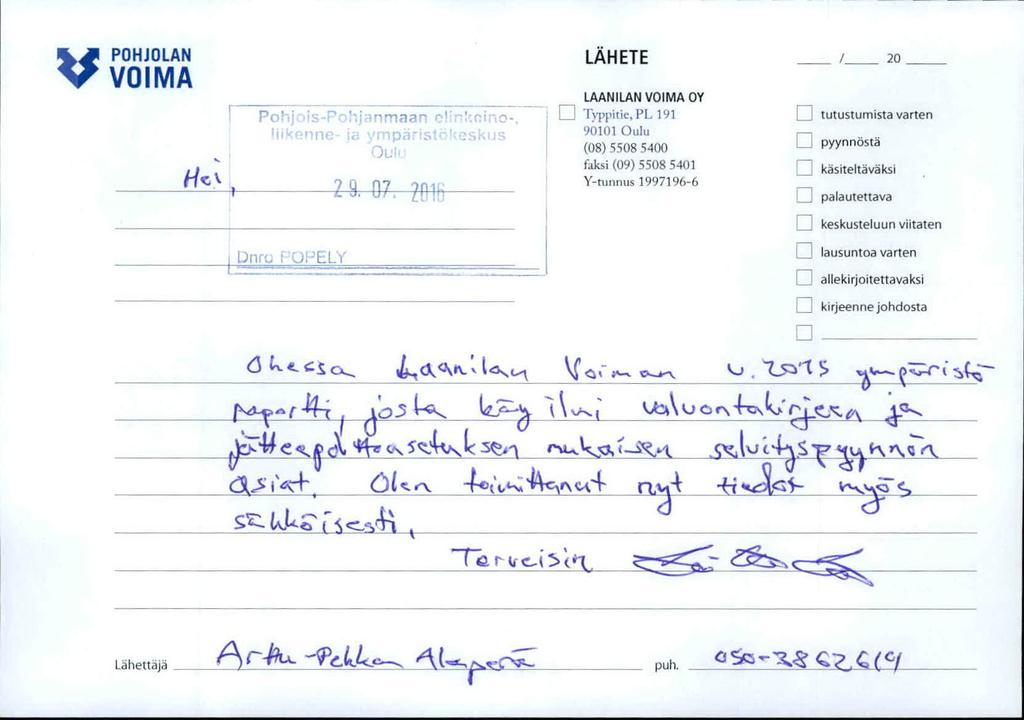 POHJOLAN
VOIMA
LÄHETE
/ 20
LAANILAN VOIMA OY
Typpitie, PL 191
90101 Oulu
(08) 5508 5400
faksi (09) 5508 5401
Y-tunnus 1997196-6
tutustumista varten
pyynnöstä
käsiteltäväksi
palautettava
keskusteluun viitaten
lausuntoa varten
allekirjoitettavaksi
kirjeenne johdosta
Pohjois-Pohjanmaan elinkeino-,
liikenne- ja ympäristökeskus
Oulu
29. 07. 2016
Dnro POPELY
Hei,
Ohessa Laanilan Voiman v. 2015 ympäristö
raportti, josta käy ilmi valvontakirjeen ja
jätteenpolttoasetuksen mukaisen selvityspyynnön
asiat. Olen toimittanut nyt tiedot myös
sähköisesti.
Terveisin
Lähettäjä Arttu-Pekka Alaperä puh. 050-3862619